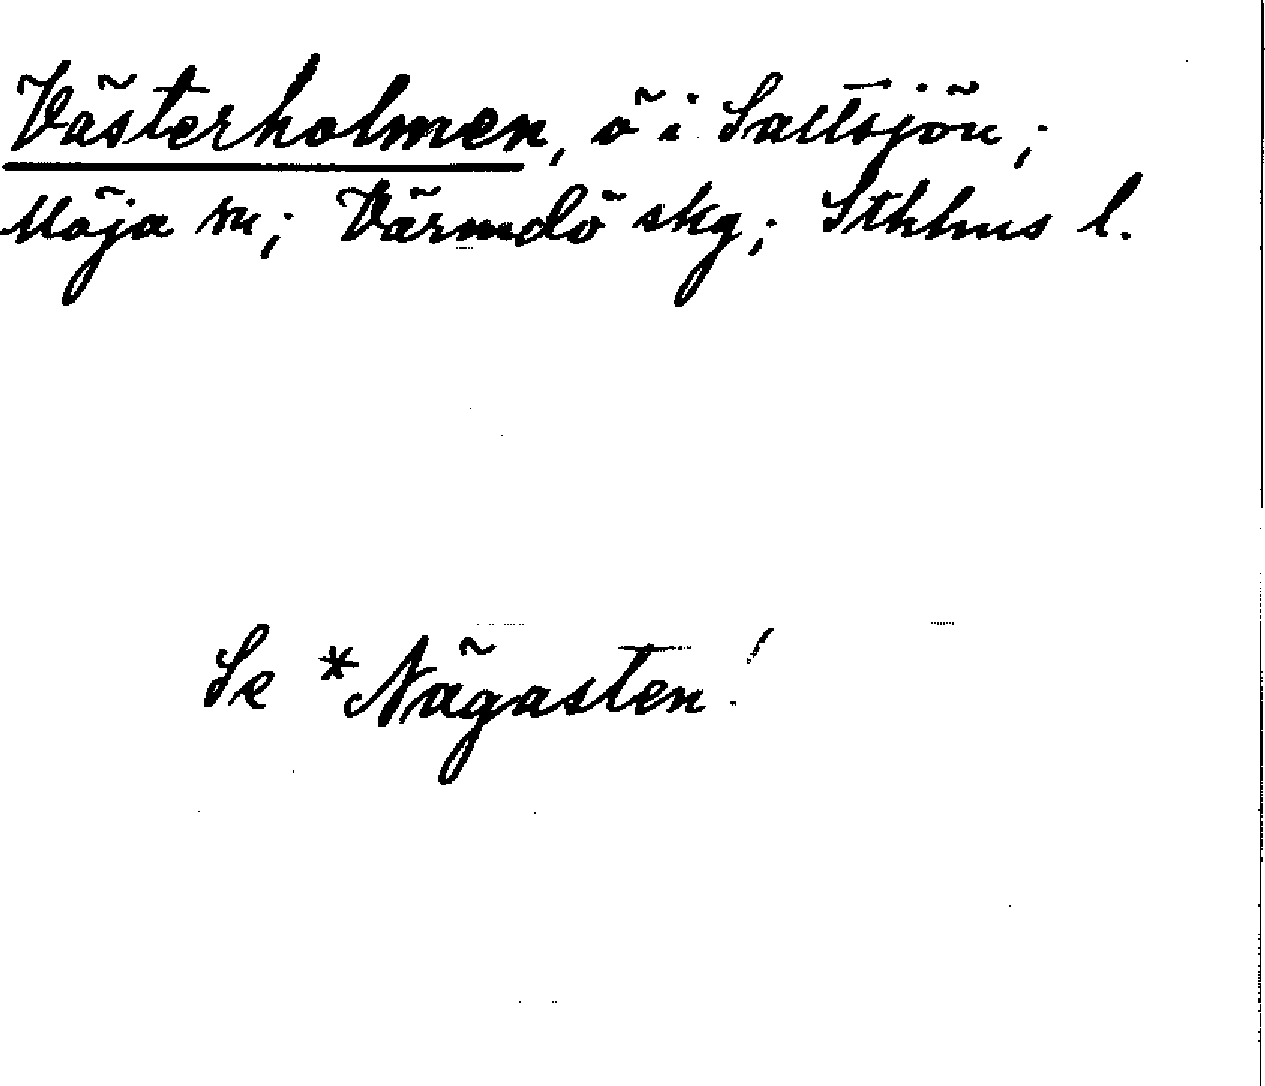 Västerholmen, ö i Saltsjön;
Möja sn; Värmdö skg; Sthlms l.
Se *Nägasten!